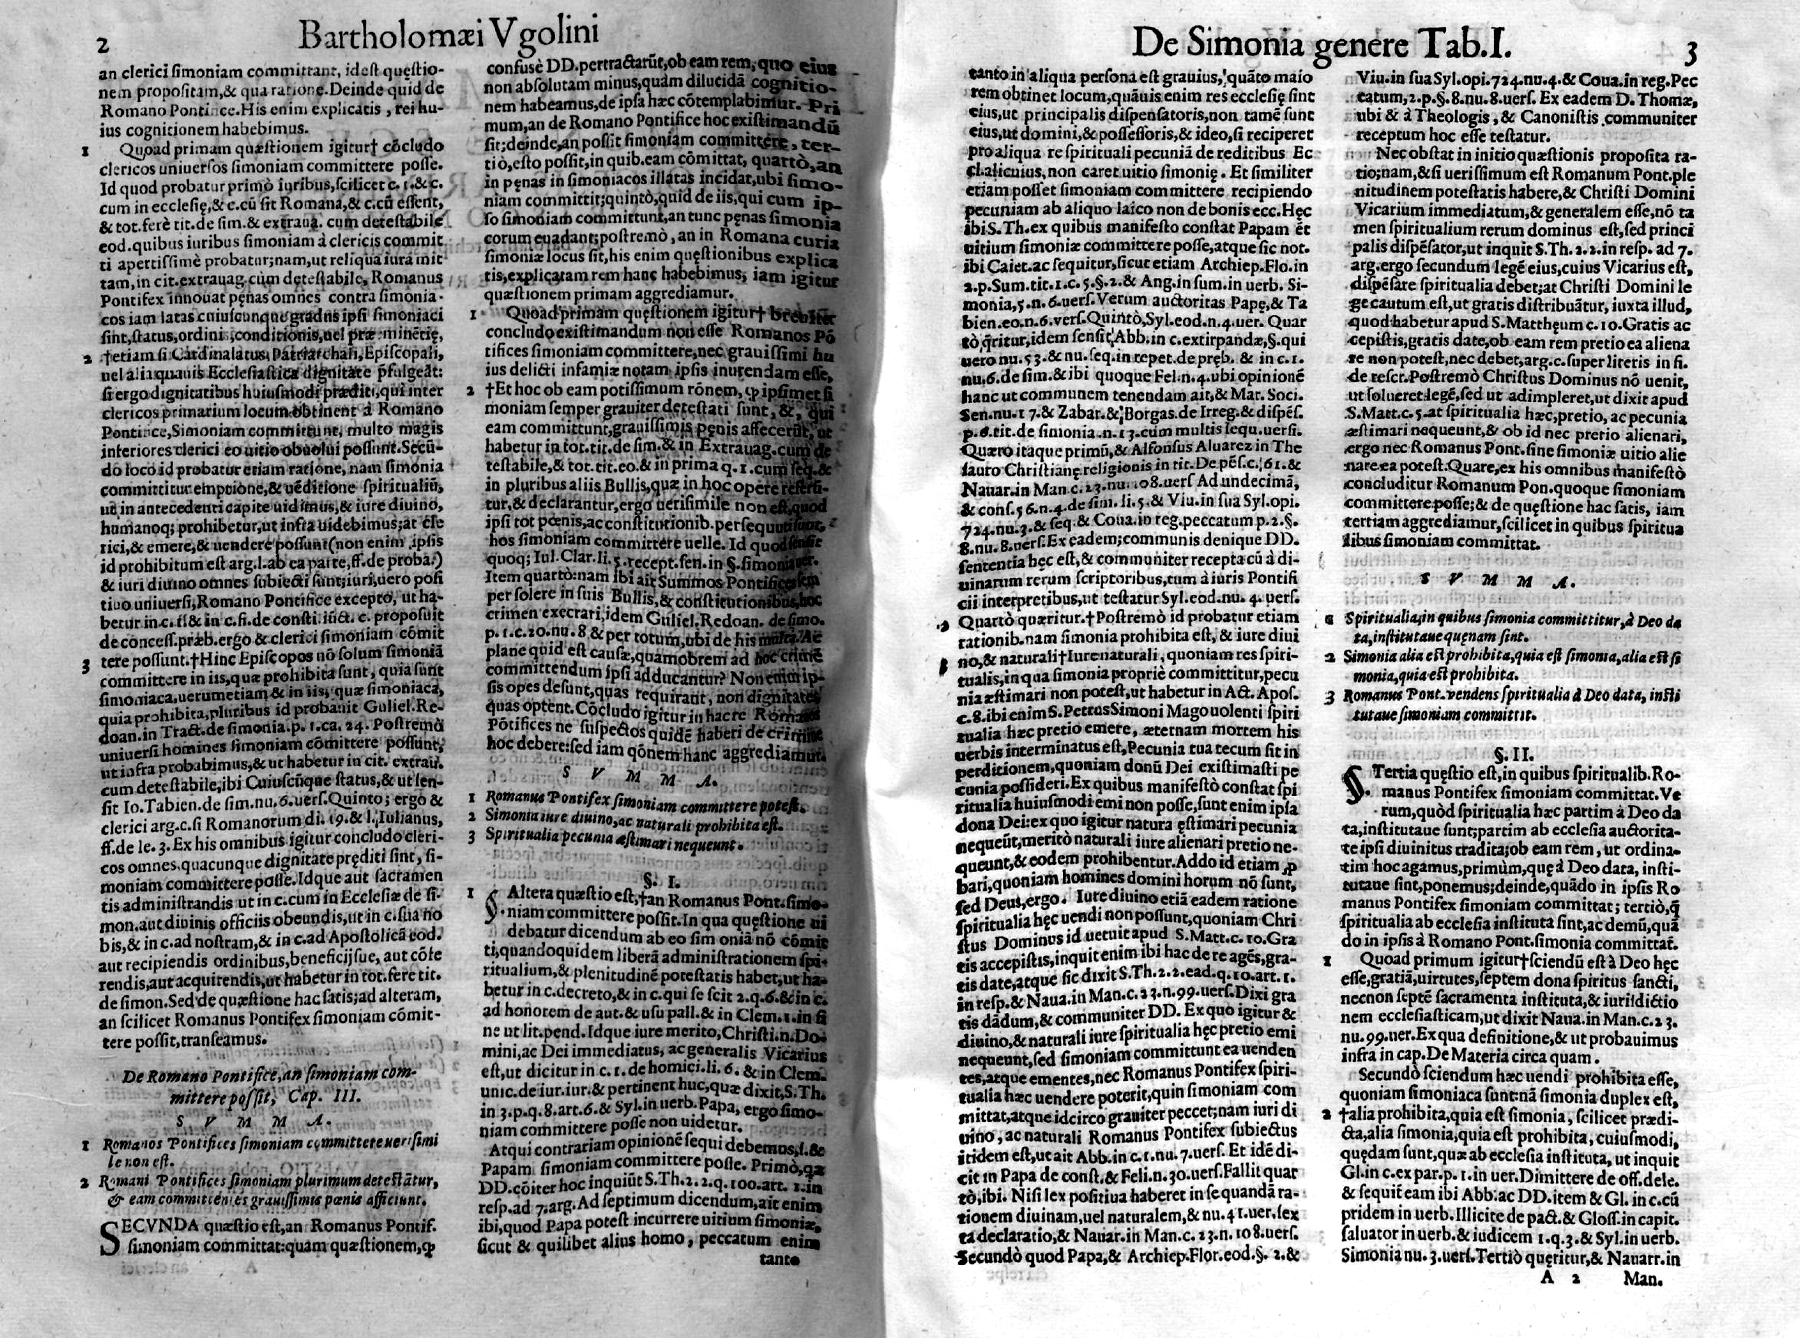 2
Bartholomæi Vgolini
an clerici simoniam committant, idest quęstio-
nem propositam,& qua ratione. Deinde quid de
Romano Pontifice. His enim explicatis, rei hu-
ius cognitionem habebimus.
1 Quoad primam quæstionem igitur† cōcludo
clericos uniuersos simoniam committere posse.
Id quod probatur primò iuribus, scilicet c. 1. & c.
cum in ecclesię,& c.cū sit Romana,& c.cū essent,
& tot.ferè tit.de sim.& extraua. cum detestabile
eod. quibus iuribus simoniam à clericis commit
ti apertissimè probatur;nam,ut reliqua iura mit
tam, in cit.extrauag.cùm detestabile, Romanus
Pontifex innouat pęnas omnes contra simonia-
cos iam latas cuiuscunque gradus ipsi simoniaci
sint,status,ordini,conditionis,uel præ minētię,
2 †etiam si Cardinalatus, Patriarchali, Episcopali,
uel alia quauis Ecclesiastica dignitate p̄fulgeāt:
si ergo dignitatibus huiusmodi præditi,qui inter
clericos primarium locum obtinent à Romano
Pontifice, Simoniam committunt, multo magis
inferiores clerici eo uitio obuolui possunt. Secū-
dò loco id probatur etiam ratione, nam simonia
committitur emptione,& uēditione spiritualiū,
ut in antecedenti capite uidimus,& iure diuino,
humanoq; prohibetur,ut infra uidebimus;at cle
rici,& emere,& uendere possunt(non enim ipsis
id prohibitum est arg.l.ab ea parte,ff.de proba.)
& iuri diuino omnes subiecti sunt;iuri,uero posi
tiuo uniuersi,Romano Pontifice excepto, ut ha-
betur in c. fi& in c.fi.de consti.
de concess.præb.ergo & clerici simoniam cōmit
3 tere possunt.†Hinc Episcopos nō solum simoniā
committere in iis,quæ prohibita sunt, quia sunt
simoniaca,uerumetiam & in iis, quæ simoniaca,
quia prohibita,pluribus id probauit Guliel.Re-
doan.in Tract.de simonia.p.1.ca. 24. Postremò
uniuersi homines simoniam cōmittere possunt,
ut infra probabimus,& ut habetur in cit. extrau.
cum detestabile,ibi Cuiuscūque status,& ut sen-
sit Io.Tabien.de sim.nu.6.uers.Quinto; ergò &
clerici arg.c.si Romanorum di. 19.& l.Iulianus,
ff.de le.3.Ex his omnibus igitur concludo cleri-
cos omnes quacunque dignitate pręditi sint, si-
moniam committere posse. Idque aut sacramen
tis administrandis ut in c.cum in Ecclesiæ de si-
mon.aut diuinis officiis obeundis,ut in c.sua no
bis,& in c.ad nostram,& in c.ad Apostolicā eod.
aut recipiendis ordinibus,beneficijsue, aut cōfe
rendis,aut acquirendis,ut habetur in tot.fere tit.
de simon.Sed de quæstione hac satis;ad alteram,
an scilicet Romanus Pontifex simoniam cōmit-
tere possit,transeamus.
De Romano Pontifice,an simoniam com-
mittere possit, Cap. III.
S V M M A.
1 Romanos Pontifices simoniam committere uerisimi
le non est.
2 Romani Pontifices simoniam plurimum detestātur,
& eam committentes grauissimis pœnis afficiunt.
SECVNDA quæstio est,an Romanus Pontif.
simoniam committat:quam quæstionem,ꝙ
confusè DD.pertractarūt,ob eam rem, quo eius
non absolutam minus,quàm dilucidā cognitio-
nem habeamus,de ipsa hæc cōtemplabimur. Pri
mum,an de Romano Pontifice hoc existimandū
sit;deinde,an possit simoniam committere, ter-
tiò,esto possit,in quib.eam cōmittat, quartò,an
in pęnas in simoniacos illatas incidat,ubi simo-
niam committit;quintò,quid de iis,qui cum ip-
so simoniam committunt,an tunc pęnas simonia
corum euadant;postremò, an in Romana curia
simoniæ locus sit,his enim quęstionibus explica
tis,explicatam rem hanc habebimus; iam igitur
quæstionem primam aggrediamur.
1 Quoad primam quęstionem igitur† breuiter
concludo existimandum non esse Romanos Pō
tifices simoniam committere,nec grauissimi hu
ius delicti infamiæ notam ipsis inurendam esse,
2 †Et hoc ob eam potissimum rōnem, ꝙ ipsimet si
moniam semper grauiter detestati sunt, &, qui
eam committunt,grauissimis pęnis affecerūt, ut
habetur in tot.tit.de sim.& in Extrauag.cum de
testabile,& tot.tit.eo.& in prima q.1.cum seq.&
in pluribus aliis Bullis,quæ in hoc opere referū-
tur,& declarantur,ergo uerisimile non est,quod
ipsi tot pœnis,ac constitutionib.persequuti sunt,
hos simoniam committere uelle. Id quod sensit
quoq; Iul.Clar.li.5.recept.sen.in §.simonia uer.
Item quartò:nam ibi ait Summos Pontifices sem
per solere in suis Bullis,& constitutionibus,hoc
crimen execrari,idem Guliel.Redoan. de simo.
p.1.c.20.nu.8,& per totum,ubi de his multa.Ac
plane quid est causæ,quamobrem ad hoc crimē
committendum ipsi adducantur? Non enim ip-
sis opes desunt,quas requirant, non dignitates
quas optent. Cōcludo igitur in hac re Romanos
Pōtifices ne suspectos quidē haberi de crimine
hoc debere:sed iam qōnem hanc aggrediamur.
S V M M A.
1 Romanus Pontifex simoniam committere potest.
2 Simonia iure diuino, ac naturali prohibita est.
3 Spiritualia pecunia æstimari nequeunt.
§. I.
1 Altera quæstio est,†an Romanus Pont.simo-
niam committere possit. In qua quęstione ui
debatur dicendum ab eo simoniā nō cōmit
ti,quandoquidem liberā administrationem spi-
ritualium,& plenitudinē potestatis habet,ut ha-
betur in c.decreto,& in c.qui se scit 2.q.6.& in c.
ad honorem de aut.& usu pall.& in Clem.1.in fi
ne ut lit.pend. Idque iure merito,Christi.n.Do-
mini,ac Dei immediatus, ac generalis Vicarius
est,ut dicitur in c.1.de homici.li.6. & in Clem.
unic.de iur.iur.& pertinent huc,quæ dixit,S.Th.
in 3.p.q.8.art.6.& Syl.in uerb.Papa, ergo simo-
niam committere posse non uidetur.
Atqui contrariam opinionē sequi debemus,l.&
Papam simoniam committere posse. Primò,qa
DD.cōiter hoc inquiūt S.Th.2.2.q.100.art.1.in
resp.ad 7.arg.Ad septimum dicendum,ait enim
ibi,quod Papa potest incurrere uitium simoniæ,
sicut & quilibet alius homo, peccatum enim
tanto
De Simonia genere Tab.I.
3
tanto in aliqua persona est grauius, quāto maio
rem obtinet locum,quāuis enim res ecclesię sint
eius,ut principalis dispensatoris,non tamē sunt
eius,ut domini,& possessoris,& ideo,si reciperet
pro aliqua re spirituali pecuniā de reditibus Ec
cl.alicuius,non caret uitio simonię. Et similiter
etiam posset simoniam committere recipiendo
pecuniam ab aliquo laico non de bonis ecc.Hęc
ibi S.Th.ex quibus manifesto constat Papam ēt
uitium simoniæ committere posse,atque sic not.
ibi Caiet.ac sequitur,sicut etiam Archiep.Flo.in
2.p.Sum.tit.1.c.5.§.2.& Ang.in sum.in uerb. Si-
monia,5.n.6.uers.Verum auctoritas Papę,& Ta
bien.eo.n.6.vers.Quintò,Syl.eod.n.4.uer. Quar
tò q̄ritur,idem sensit Abb.in c.extirpandæ,§.qui
uero nu.53.& nu.seq.in repet.de pręb. & in c.1.
nu.6.de sim.& ibi quoque Fel.n.4.ubi opinionē
hanc ut communem tenendam ait,& Mar. Soci.
Sen.nu.17.& Zabar.& Borgas.de Irreg.& dispēs.
p.6.tit.de simonia.n.13.cum multis sequ.uersi.
Quæro itaque primū,& Alfonsus Aluarez in The
sauro Christianę religionis in tit.De pēs.c.61.&
Nauar.in Man.c.23.nu.108.uers Ad undecimā,
& cons.56.n.4.de sim.li.5.& Viu.in sua Syl.opi.
724.nu.3.& seq.& Coua.in reg.peccatum p.2.§.
8.nu.8.uers.Ex eadem;communis denique DD.
sententia hęc est,& communiter recepta cū à di-
uinarum rerum scriptoribus,tum à iuris Pontifi
cii interpretibus,ut testatur Syl.eod.nu.4. uers.
2 Quartò quæritur.†Postremò id probatur etiam
rationib.nam simonia prohibita est, & iure diui
3 no,& naturali†Iure naturali, quoniam res spiri-
tualis,in qua simonia propriè committitur,pecu
nia æstimari non potest,ut habetur in Act. Apos.
c.8.ibi enim S.Petrus Simoni Mago uolenti spiri
tualia hæc pretio emere, æternam mortem his
uerbis interminatus est,Pecunia tua tecum sit in
perditionem,quoniam donū Dei existimasti pe
cunia possideri.Ex quibus manifestò constat spi
ritualia huiusmodi emi non posse,sunt enim ipsa
dona Dei:ex quo igitur natura ęstimari pecunia
nequeūt,meritò naturali iure alienari pretio ne-
queunt,& eodem prohibentur.Addo id etiam ꝓ
bari,quoniam homines domini horum nō sunt,
sed Deus,ergo. Iure diuino etiā eadem ratione
spiritualia hęc uendi non possunt,quoniam Chri
stus Dominus id uetuit apud S.Matt.c.10.Gra
tis accepistis,inquit enim ibi hac de re agēs,gra-
tis date,atque sic dixit S.Th.2.2.ead.q.10.art.1.
in resp.& Naua.in Man.c.23.n.99.uers.Dixi gra
tis dādum,& communiter DD. Ex quo igitur &
diuino,& naturali iure spiritualia hęc pretio emi
nequeunt,sed simoniam committunt ea uenden
tes,atque ementes,nec Romanus Pontifex spiri-
tualia hæc uendere poterit,quin simoniam com
mittat,atque idcirco grauiter peccet;nam iuri di
uino, ac naturali Romanus Pontifex subiectus
itidem est,ut ait Abb.in c.1.nu.7.uers. Et idē di-
cit in Papa de const.& Feli.n.30.uers.Fallit quar
tò,ibi. Nisi lex positiua haberet in se quandā ra-
tionem diuinam,uel naturalem,& nu.41.uer.sex
ta declaratio,& Nauar.in Man.c.23.n.108.uers.
Secundò quod Papa,& Archiep.Flor.eod.§. 2.&
Viu.in sua Syl.opi.724.nu.4.& Coua.in reg.Pec
catum,2.p.§.8.nu.8.uers. Ex eadem D. Thomæ,
ubi & à Theologis, & Canonistis communiter
receptum hoc esse testatur.
Nec obstat in initio quæstionis proposita ra-
tio;nam,& si uerissimum est Romanum Pont.ple
nitudinem potestatis habere,& Christi Domini
Vicarium immediatum,& generalem esse,nō ta
men spiritualium rerum dominus est,sed princi
palis dispēsator,ut inquit S.Th.2.2.in resp. ad 7.
arg.ergo secundum legē eius,cuius Vicarius est,
dispēsare spiritualia debet;at Christi Domini le
ge cautum est,ut gratis distribuātur, iuxta illud,
quod habetur apud S.Mattheum c.10.Gratis ac
cepistis,gratis date,ob eam rem pretio ea aliena
re non potest,nec debet,arg.c.super literis in fi.
de rescr.Postremò Christus Dominus nō uenit,
ut solueret legē,sed ut adimpleret,ut dixit apud
S.Matt.c.5.at spiritualia hæc,pretio, ac pecunia
æstimari nequeunt,& ob id nec pretio alienari,
ergo nec Romanus Pont.sine simoniæ uitio alie
nare ea potest. Quare,ex his omnibus manifestò
concluditur Romanum Pon.quoque simoniam
committere posse;& de quęstione hac satis, iam
tertiam aggrediamur,scilicet in quibus spiritua
libus simoniam committat.
S V M M A.
1 Spiritualia,in quibus simonia committitur,à Deo da
ta,institutaue quęnam sint.
2 Simonia alia est prohibita,quia est simonia,alia est si
monia,quia est prohibita.
3 Romanus Pont.vendens spiritualia à Deo data, insti
tutaue simoniam committit.
§. II.
Tertia quęstio est,in quibus spiritualib.Ro-
manus Pontifex simoniam committat. Ve
rum,quòd spiritualia hæc partim à Deo da
ta,institutaue sunt;partim ab ecclesia auctorita-
te ipsi diuinitus tradita;ob eam rem, ut ordina-
tim hoc agamus,primùm,quę à Deo data, insti-
tutaue sint,ponemus;deinde,quādo in ipsis Ro
manus Pontifex simoniam committat; tertiò,q̄
spiritualia ab ecclesia instituta sint,ac demū,quā
do in ipsis à Romano Pont.simonia committat.
1 Quoad primum igitur†sciendū est à Deo hęc
esse,gratiā,uirtutes,septem dona spiritus sancti,
necnon septē sacramenta instituta,& iurisdictio
nem ecclesiasticam,ut dixit Naua.in Man.c.23.
nu.99.uer.Ex qua definitione,& ut probauimus
infra in cap.De Materia circa quam.
Secundò sciendum hæc uendi prohibita esse,
quoniam simoniaca sunt:nā simonia duplex est,
2 †alia prohibita,quia est simonia, scilicet prædi-
cta,alia simonia,quia est prohibita, cuiusmodi,
quędam sunt,quæ ab ecclesia instituta, ut inquit
Gl.in c.ex par.p.1.in uer. Dimittere de off.dele.
& sequit eam ibi Abb.ac DD.item & Gl. in c.cū
pridem in uerb. Illicite de pact.& Gloss.in capit.
saluator in uerb.& iudicem 1.q.3.& Syl.in uerb.
Simonia nu. 3.uers.Tertiò quęritur,& Nauarr.in
A 2 Man.